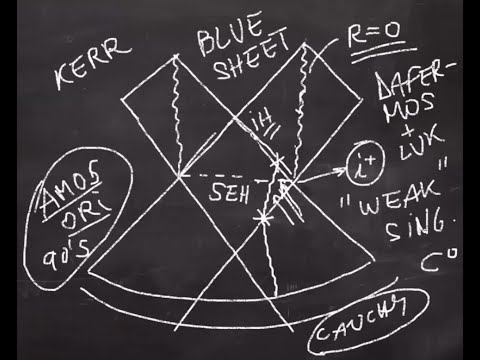 KERR
BLUE
SHEET
R=0
DAFER-
MOS
+
LUK
iH
SEH
i+
"WEAK"
SING.
C⁰
AMOS
ORI
90'S
CAUCHY